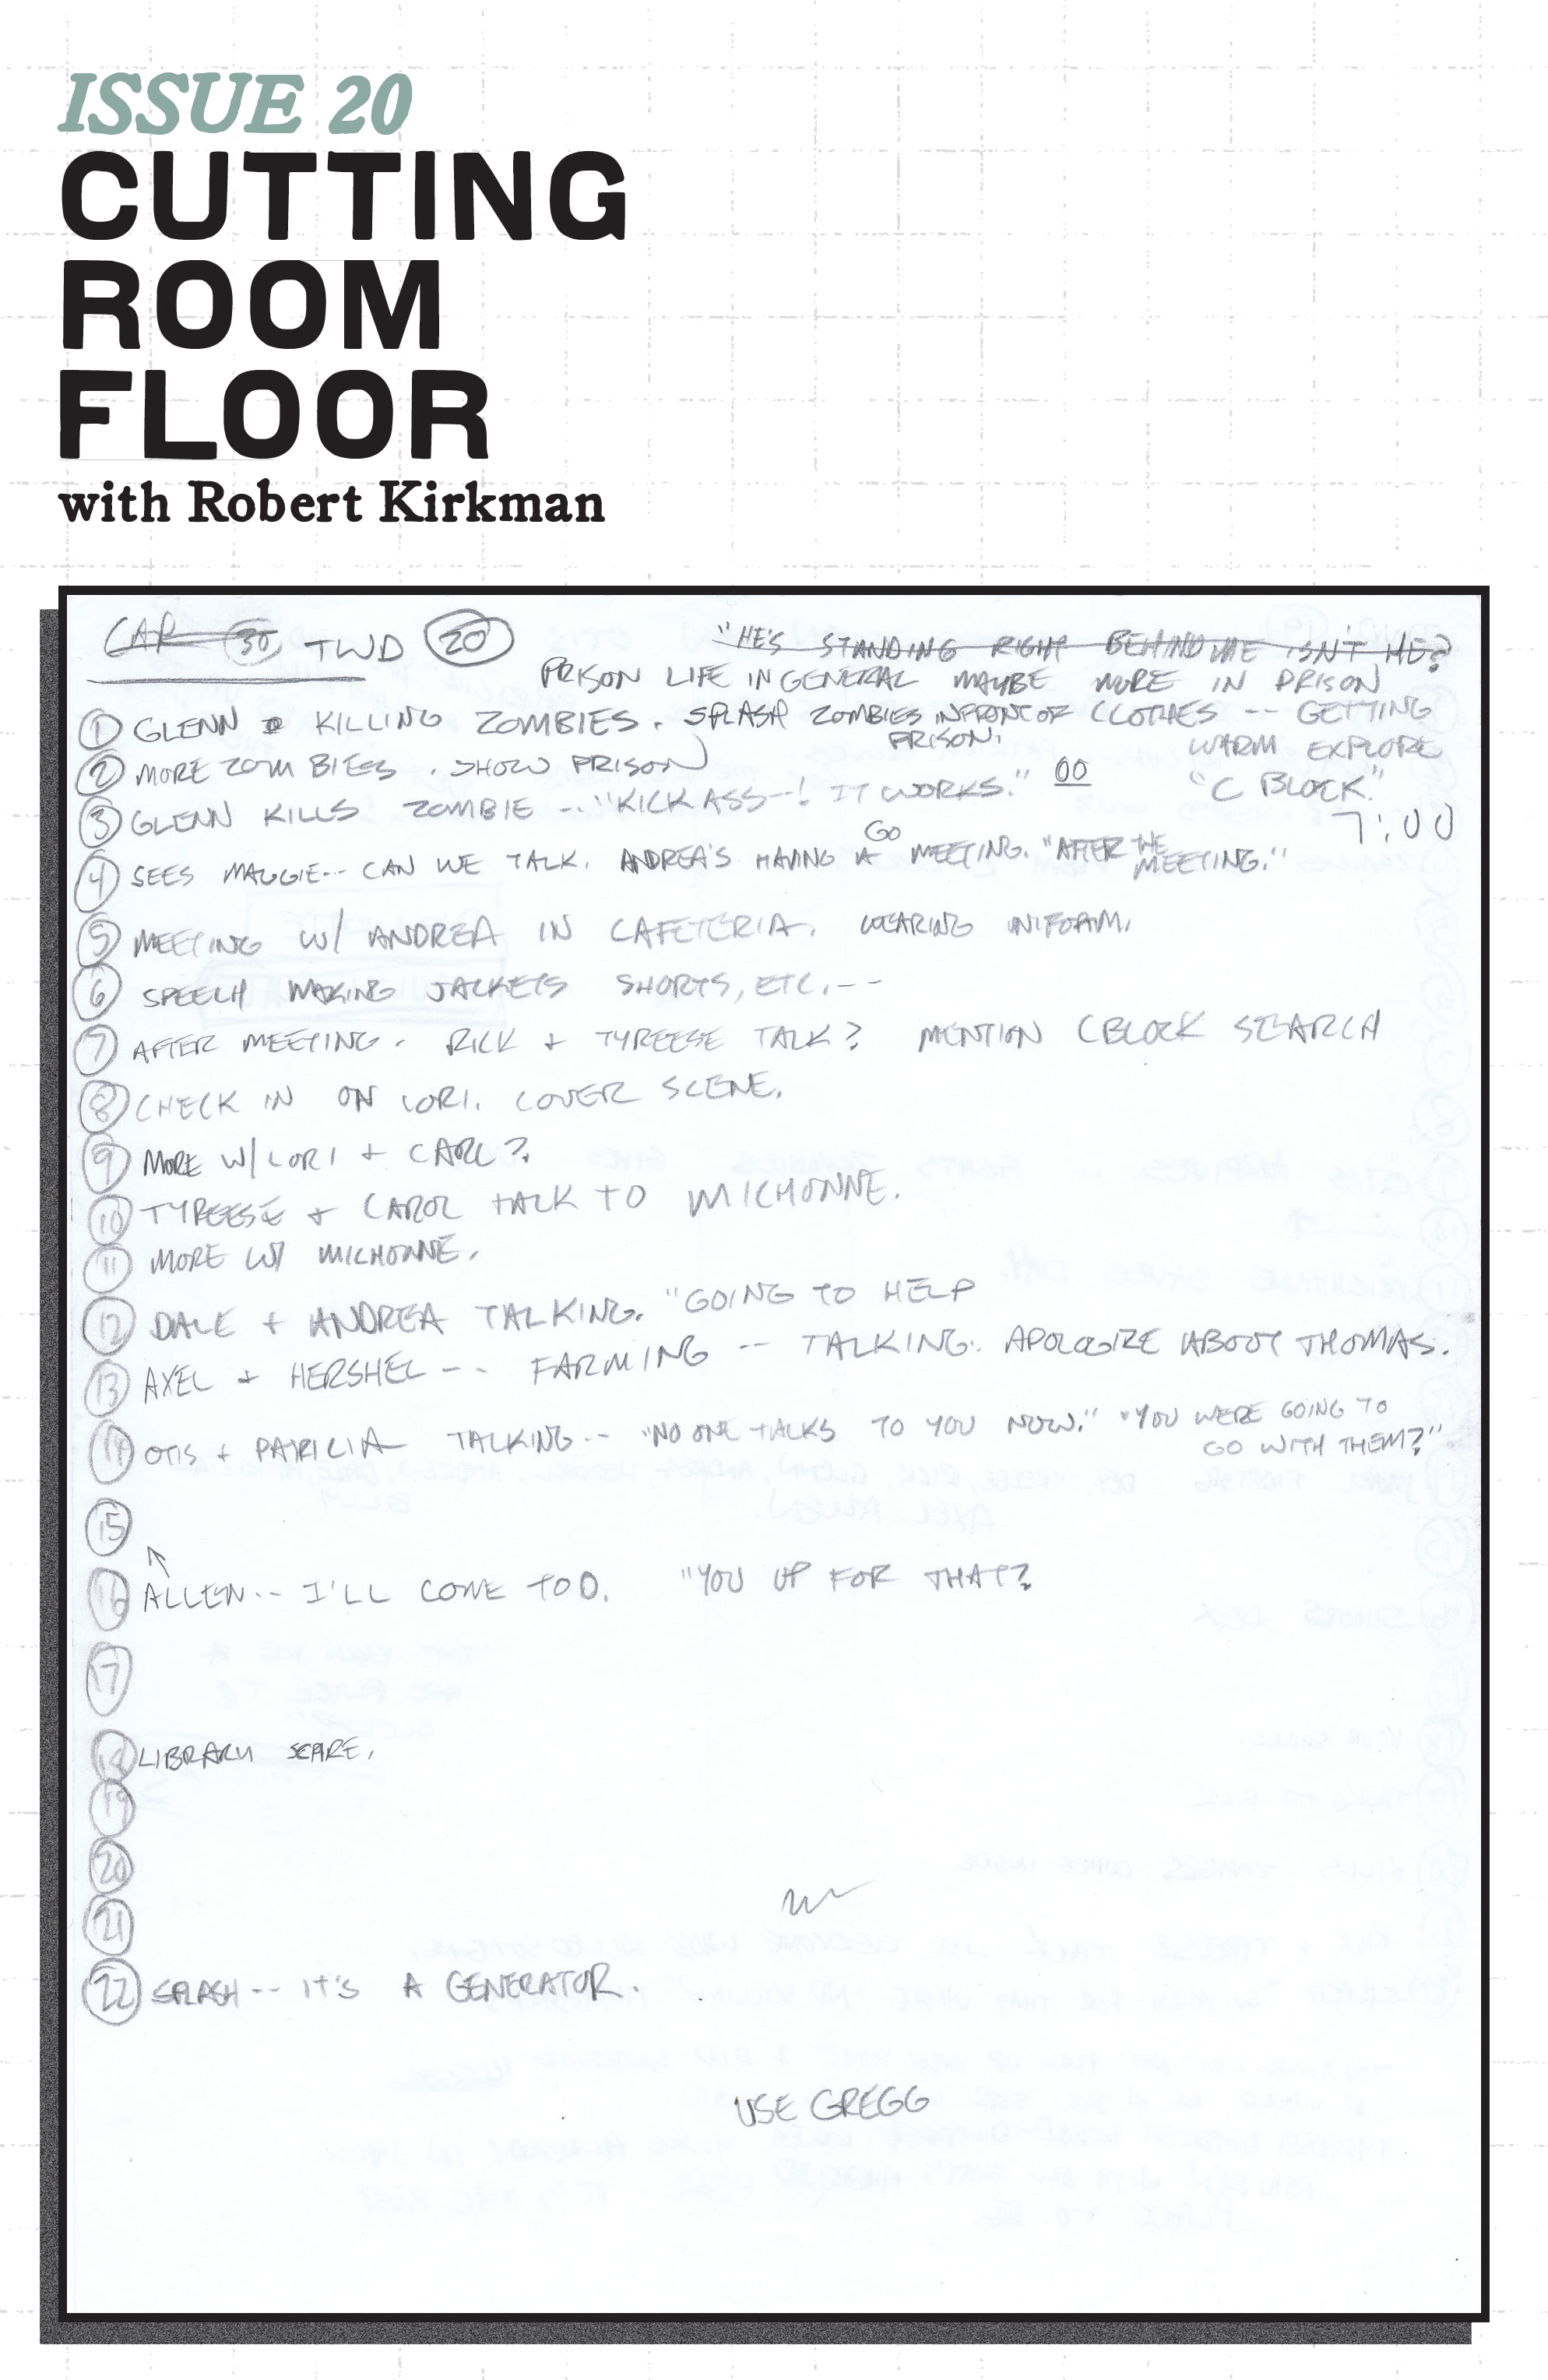 ISSUE 20
CUTTING
ROOM
FLOOR
with Robert Kirkman
CAR 30 TWD 20
"HE'S STANDING RIGHT BEHIND ME ISN'T HE?
PRISON LIFE IN GENERAL MAYBE MORE IN PRISON
1 GLENN KILLING ZOMBIES. SPLASH ZOMBIES IN FRONT OF PRISON.
CLOTHES -- GETTING
WARM EXPLORE
"C BLOCK."
7:00
2 MORE ZOMBIES. SHOW PRISON
3 GLENN KILLS ZOMBIE -- "KICK ASS--! IT WORKS." 00
4 SEES MAGGIE-- CAN WE TALK. ANDREA'S HAVING A MEETING. "AFTER THE MEETING."
GO
5 MEETING W/ ANDREA IN CAFETERIA. WEARING UNIFORM.
6 SPEECH MAKING JACKETS SHORTS, ETC.--
7 AFTER MEETING. RICK + TYREESE TALK? MENTION C BLOCK SEARCH
8 CHECK IN ON LORI. COVER SCENE.
9 MORE W/ LORI + CARL?
10 TYREESE + CAROL TALK TO MICHONNE.
11 MORE W/ MICHONNE.
12 DALE + ANDREA TALKING. "GOING TO HELP
13 AXEL + HERSHEL -- FARMING -- TALKING. APOLOGIZE ABOUT THOMAS.
14 OTIS + PATRICIA TALKING -- "NO ONE TALKS TO YOU NOW." "YOU WERE GOING TO
GO WITH THEM?"
15
16 ALLEN-- I'LL COME TOO. "YOU UP FOR THAT?
17
18 LIBRARY SCARE.
19
20
21
22 SPLASH -- IT'S A GENERATOR.
USE GREGG